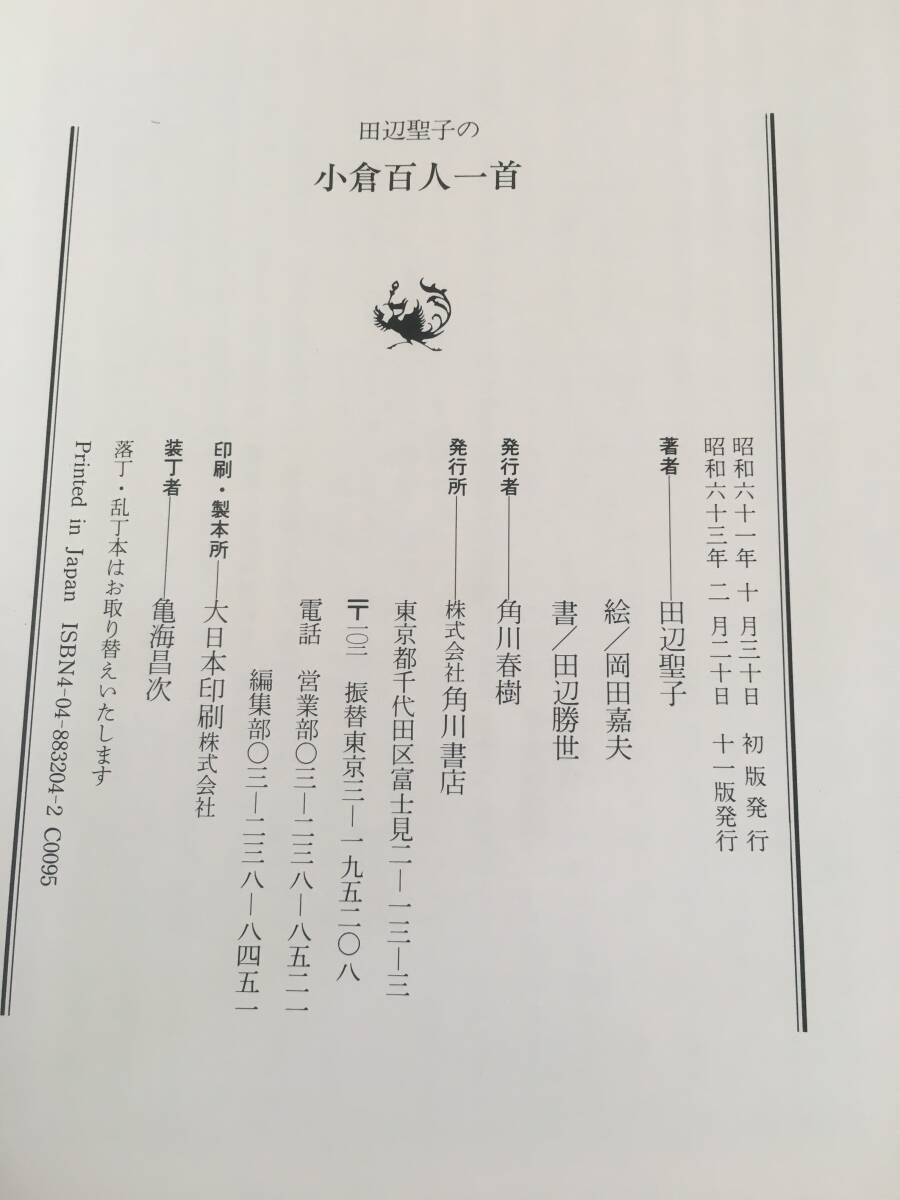 田辺聖子の
小倉百人一首
昭和六十一年 十 月三十日 初 版 発 行
昭和六十三年 二 月二十日 十一版発行
著者――田辺聖子
絵/岡田嘉夫
書/田辺勝世
発行者――角川春樹
発行所――株式会社角川書店
東京都千代田区富士見二―一三―三
〒一〇二 振替東京三―一九五二〇八
電話 営業部〇三―二三八―八五二一
編集部〇三―二三八―八四五一
印刷・製本所―大日本印刷株式会社
装丁者――亀海昌次
落丁・乱丁本はお取り替えいたします
Printed in Japan ISBN4-04-883204-2 C0095